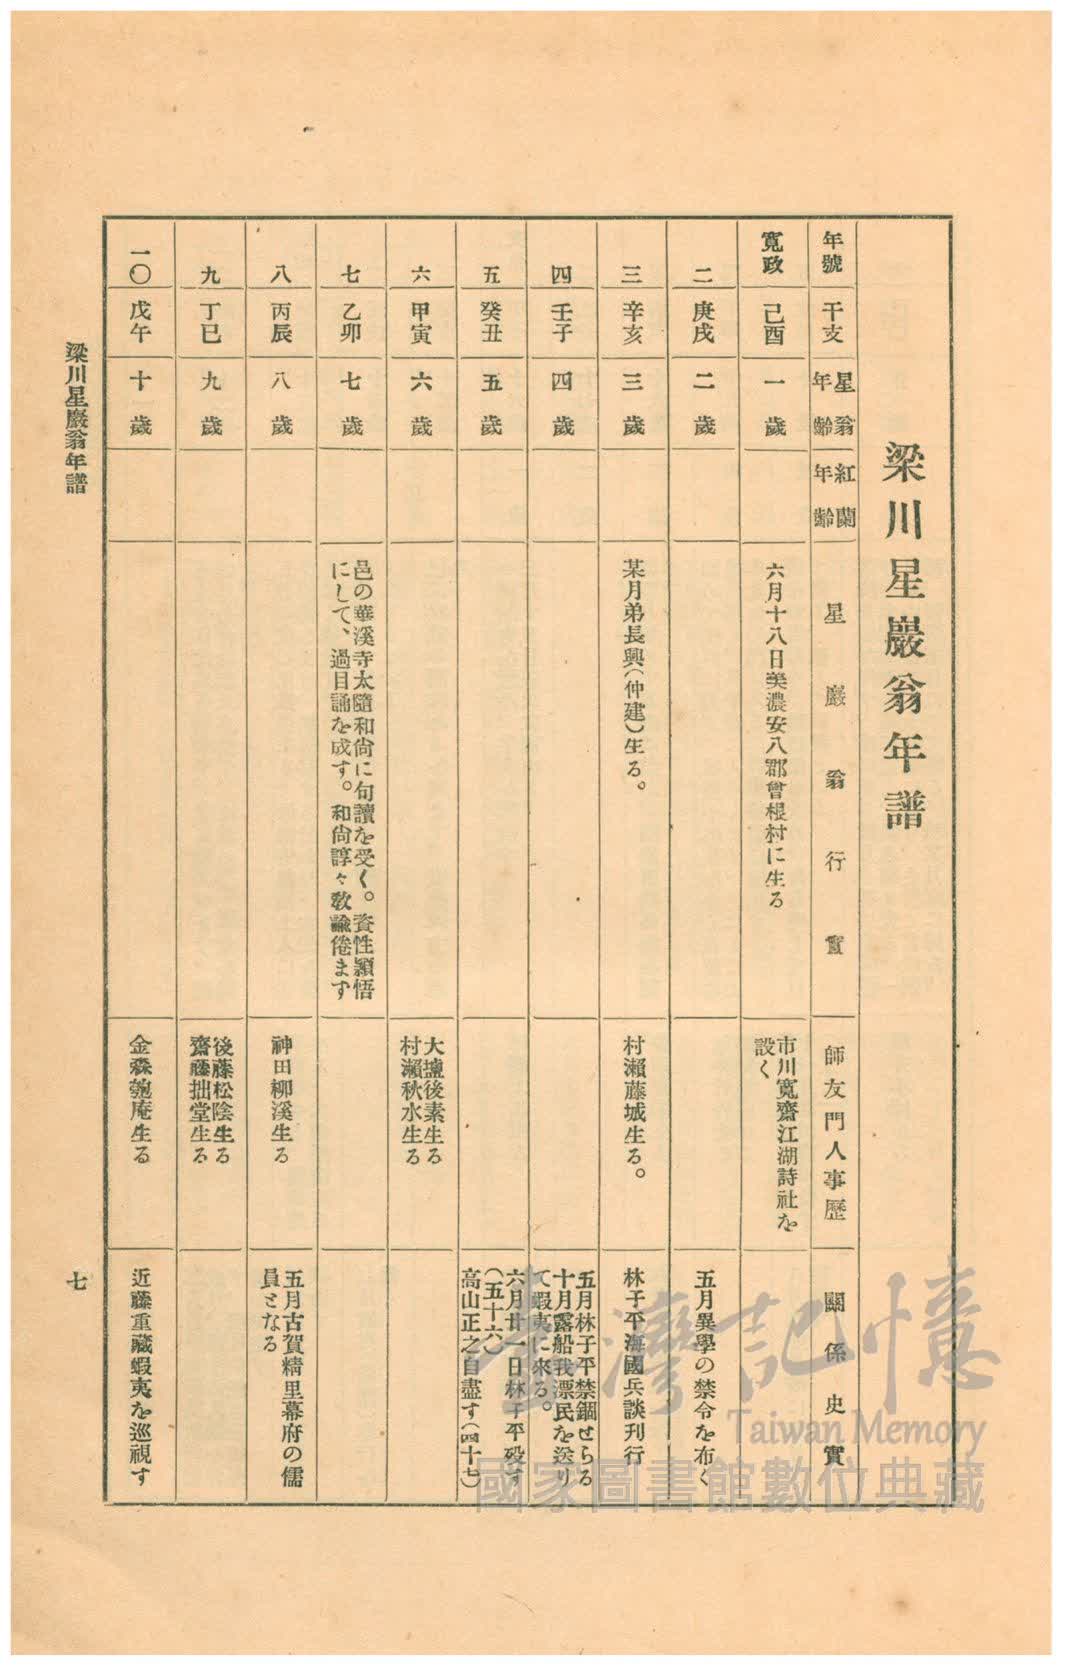 梁川星巖翁年譜
年號
干支
星翁年齡
紅蘭年齡
星巖翁行實
師友門人事歷
關係史實
寬政
己酉
一歲
六月十八日美濃安八郡曾根村に生る
市川寬齋江湖詩社を
設く
二
庚戌
二歲
五月異學の禁令を布く
三
辛亥
三歲
某月弟長興(仲建)生る。
村瀨藤城生る。
林子平海國兵談刊行
四
壬子
四歲
五月林子平禁錮せらる
十月露船我漂民を送り
て蝦夷に來る。
五
癸丑
五歲
六月廿一日林子平歿す
(五十六)
高山正之自盡す(四十七)
六
甲寅
六歲
大鹽後素生る
村瀨秋水生る
七
乙卯
七歲
邑の華溪寺太隨和尙に句讀を受く。資性穎悟
にして、過目誦を成す。和尙諄々敎諭倦ます
八
丙辰
八歲
神田柳溪生る
五月古賀精里幕府の儒
員となる
九
丁巳
九歲
後藤松陰生る
齋藤拙堂生る
一〇
戊午
十一歲
金森匏庵生る
近藤重藏蝦夷を巡視す
梁川星巖翁年譜
七
臺灣記憶
Taiwan Memory
國家圖書館數位典藏